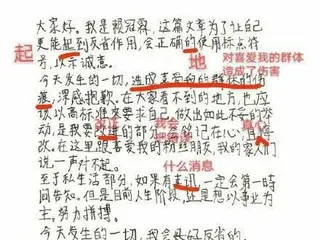 大家好。我是赖冠霖,这篇文章为了让自
更能起到反省作用,会正确的使用标点符
号,以示诚意。
起
地
对喜爱我的群体
造成了伤害
今天发生的一切,造成喜爱的群体的伤
痕,深感抱歉。在大家看不到的地方,也应
该以高标准来要求自己,做出如此不妥的举
动,是我要改进的部分,会铭记在心,
改。在这里跟喜爱我的粉丝朋友,我的家人们
说一声对不起。
什么消息
至于私生活部分,如果有喜讯,一定会第一时
间告知。但是目前人生阶段,还是想以事业为
主,努力拼搏。
今天发生的一切,我会好好反省的。